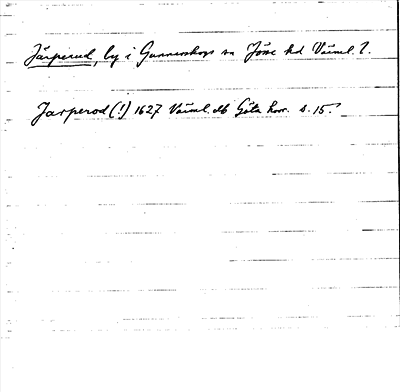 Järperud, by i Gunnarskogs sn Jösse hd Värml. l.
Jarperod (!) 1627 Värml. db Göta hovr. s. 15.